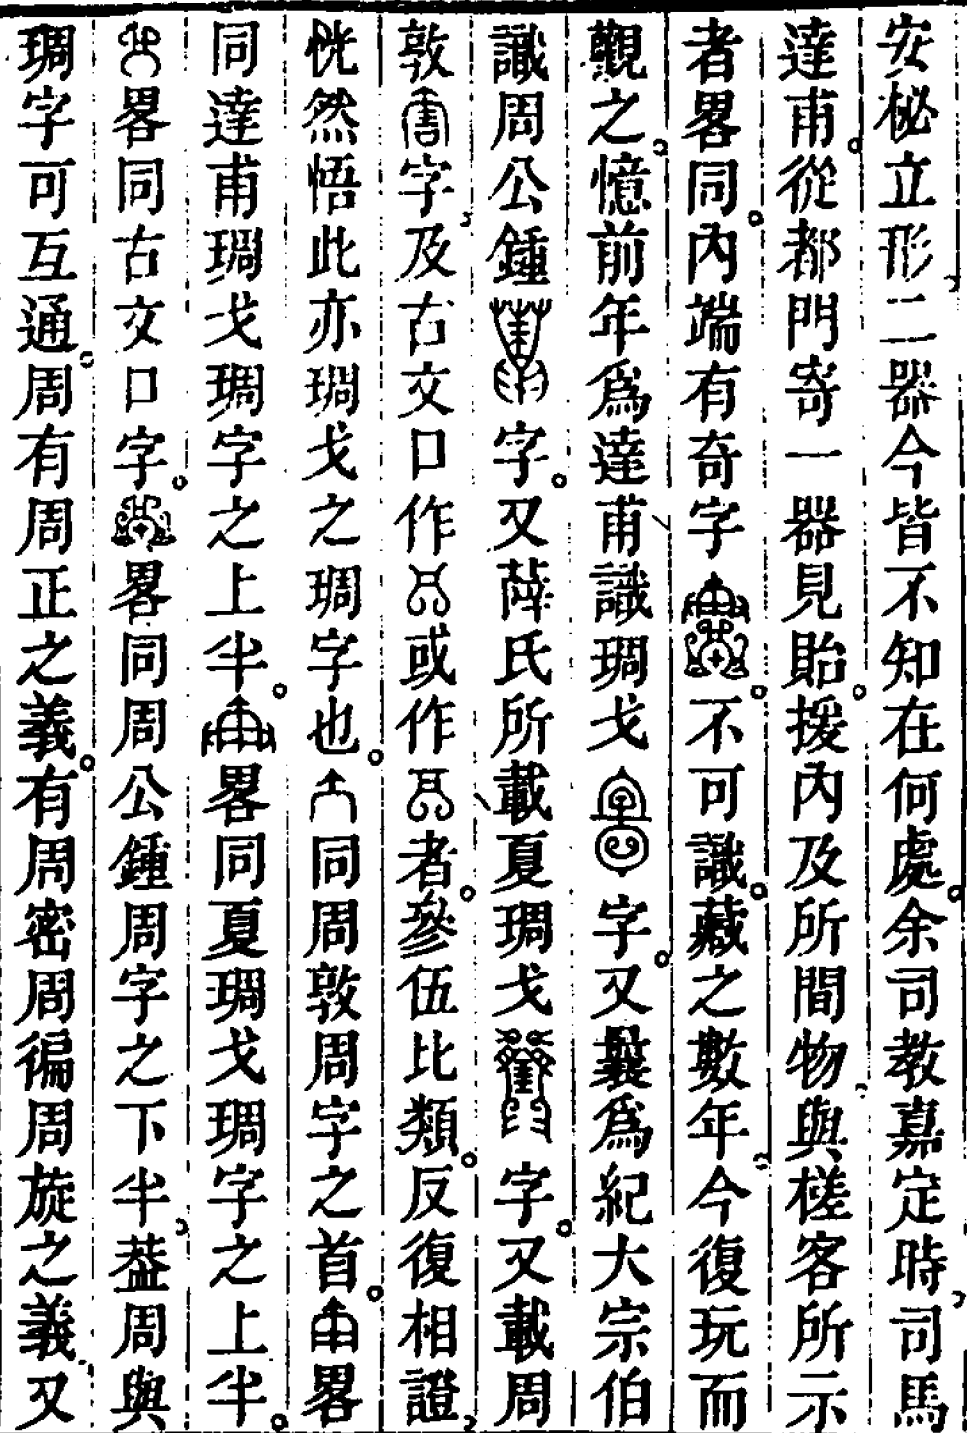 安柲立形二器今皆不知在何處余司教嘉定時司馬
達甫從都門寄一器見貽援內及所間物與槎客所示
者畧同內端有奇字不可識藏之數年今復玩而
觀之憶前年爲達甫識琱戈字又曩爲紀大宗伯
識周公鍾字又薛氏所載夏琱戈字又載周
敦字及古文口作或作者參伍比類反復相證
恍然悟此亦琱戈之琱字也同周敦周字之首畧
同達甫琱戈琱字之上半畧同夏琱戈琱字之上半
畧同古文口字畧同周公鍾周字之下半葢周與
琱字可互通周有周正之義有周密周徧周旋之義又